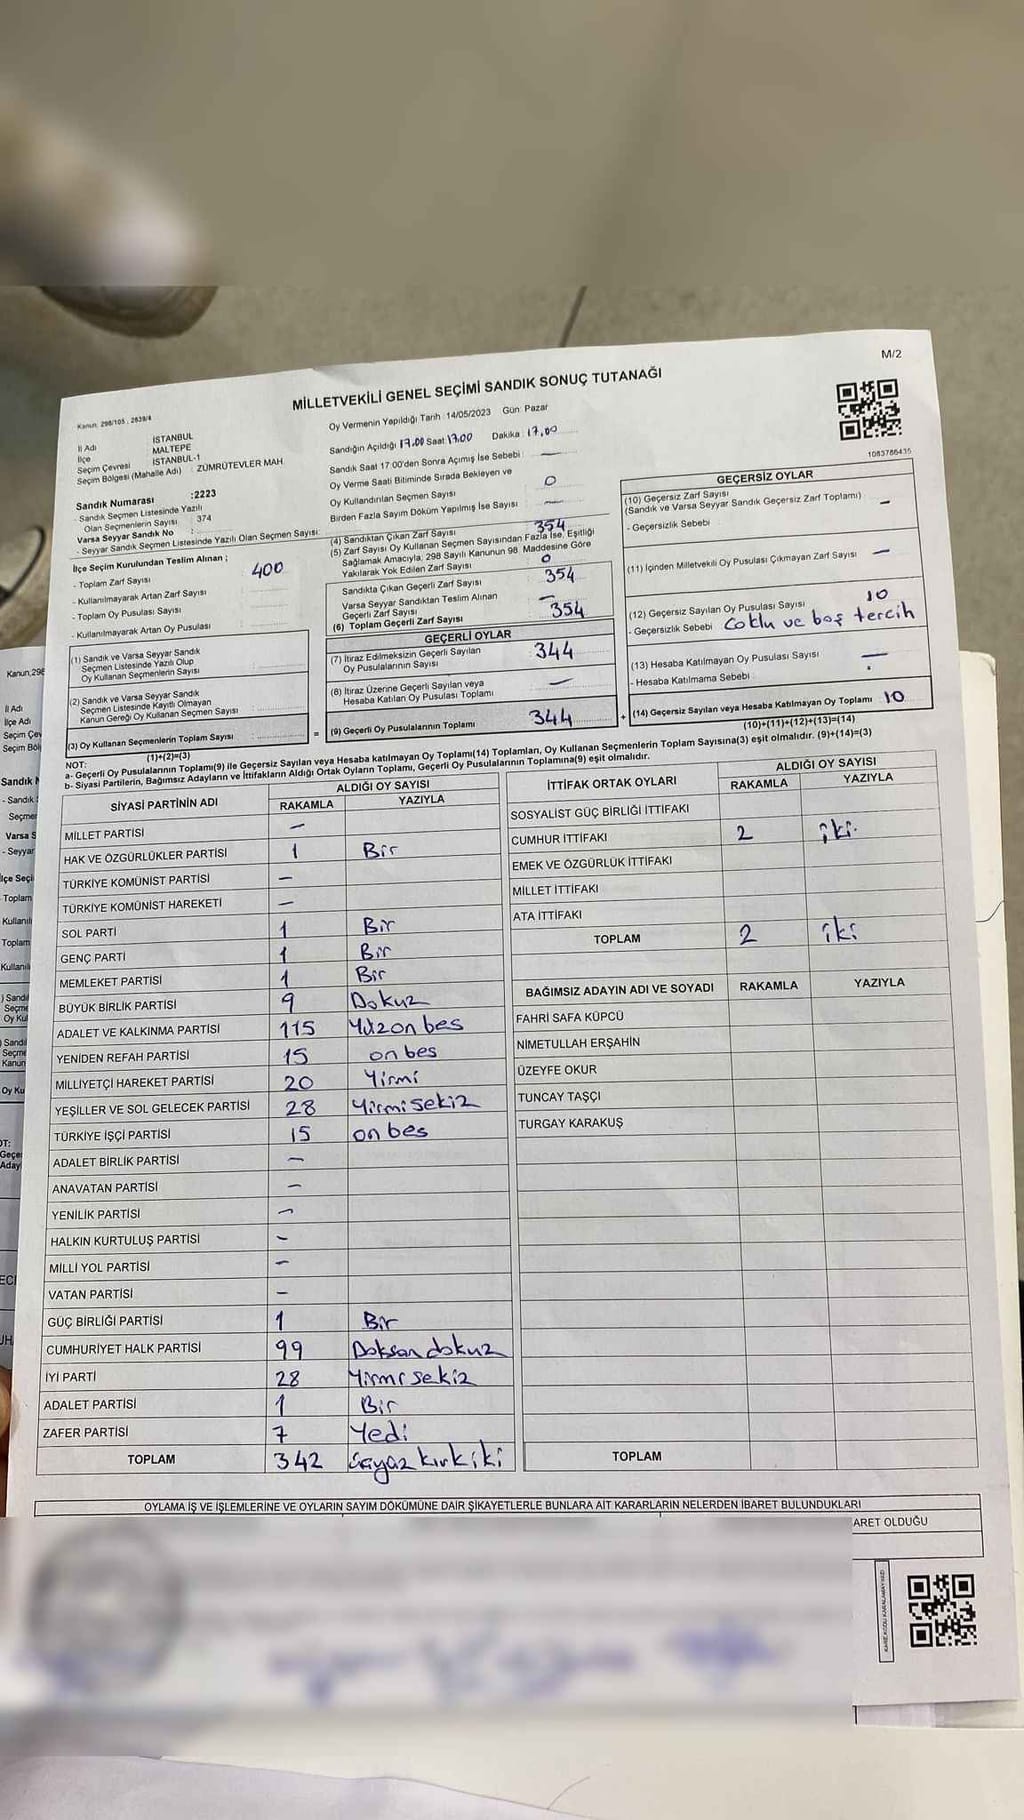 M/2
MİLLETVEKİLİ GENEL SEÇİMİ SANDIK SONUÇ TUTANAĞI
Kanun: 298/105 , 2839/4
1083786435
İl Adı İSTANBUL
İlçe MALTEPE
Seçim Çevresi İSTANBUL-1
Seçim Bölgesi (Mahalle Adı) : ZÜMRÜTEVLER MAH.
Sandık Numarası :2223
- Sandık Seçmen Listesinde Yazılı
Olan Seçmenlerin Sayısı : 374
Varsa Seyyar Sandık No :
- Seyyar Sandık Seçmen Listesinde Yazılı Olan Seçmen Sayısı
İlçe Seçim Kurulundan Teslim Alınan :
- Toplam Zarf Sayısı 400
- Kullanılmayarak Artan Zarf Sayısı
- Toplam Oy Pusulası Sayısı
- Kullanılmayarak Artan Oy Pusulası
(1) Sandık ve Varsa Seyyar Sandık
Seçmen Listesinde Yazılı Olup
Oy Kullanan Seçmenlerin Sayısı
(2) Sandık ve Varsa Seyyar Sandık
Seçmen Listesinde Kayıtlı Olmayan
Kanun Gereği Oy Kullanan Seçmen Sayısı
(3) Oy Kullanan Seçmenlerin Toplam Sayısı
(1)+(2)=(3)
Oy Vermenin Yapıldığı Tarih : 14/05/2023 Gün: Pazar
Sandığın Açıldığı 17.00 Saat 17.00 Dakika : 17.00
Sandık Saat 17.00'den Sonra Açımış İse Sebebi : —
Oy Verme Saati Bitiminde Sırada Bekleyen ve
Oy Kullandırılan Seçmen Sayısı 0
Birden Fazla Sayım Döküm Yapılmış İse Sayısı —
(4) Sandıktan Çıkan Zarf Sayısı 354
(5) Zarf Sayısı Oy Kullanan Seçmen Sayısından Fazla İse, Eşitliği
Sağlamak Amacıyla; 298 Sayılı Kanunun 98. Maddesine Göre
Yakılarak Yok Edilen Zarf Sayısı 0
Sandıkta Çıkan Geçerli Zarf Sayısı 354
Varsa Seyyar Sandıktan Teslim Alınan
Geçerli Zarf Sayısı —
(6) Toplam Geçerli Zarf Sayısı 354
GEÇERLİ OYLAR
(7) İtiraz Edilmeksizin Geçerli Sayılan
Oy Pusulalarının Sayısı 344
(8) İtiraz Üzerine Geçerli Sayılan veya
Hesaba Katılan Oy Pusulası Toplamı —
(9) Geçerli Oy Pusulalarının Toplamı 344
GEÇERSİZ OYLAR
(10) Geçersiz Zarf Sayısı
(Sandık ve Varsa Seyyar Sandık Geçersiz Zarf Toplamı) —
- Geçersizlik Sebebi
(11) İçinden Milletvekili Oy Pusulası Çıkmayan Zarf Sayısı —
(12) Geçersiz Sayılan Oy Pusulası Sayısı 10
- Geçersizlik Sebebi Coklu ve boş tercih
(13) Hesaba Katılmayan Oy Pusulası Sayısı —
- Hesaba Katılmama Sebebi :
(14) Geçersiz Sayılan veya Hesaba Katılmayan Oy Toplamı 10
(10)+(11)+(12)+(13)=(14)
NOT:
a- Geçerli Oy Pusulalarının Toplamı(9) ile Geçersiz Sayılan veya Hesaba katılmayan Oy Toplamı(14) Toplamları, Oy Kullanan Seçmenlerin Toplam Sayısına(3) eşit olmalıdır. (9)+(14)=(3)
b- Siyasi Partilerin, Bağımsız Adayların ve İttifakların Aldığı Ortak Oyların Toplamı, Geçerli Oy Pusulalarının Toplamına(9) eşit olmalıdır.
SİYASİ PARTİNİN ADI ALDIĞI OY SAYISI
RAKAMLA YAZIYLA
MİLLET PARTİSİ —
HAK VE ÖZGÜRLÜKLER PARTİSİ 1 Bir
TÜRKİYE KOMÜNİST PARTİSİ —
TÜRKİYE KOMÜNİST HAREKETİ —
SOL PARTİ 1 Bir
GENÇ PARTİ 1 Bir
MEMLEKET PARTİSİ 1 Bir
BÜYÜK BİRLİK PARTİSİ 9 Dokuz
ADALET VE KALKINMA PARTİSİ 115 Yüzon bes
YENİDEN REFAH PARTİSİ 15 on bes
MİLLİYETÇİ HAREKET PARTİSİ 20 Yirmi
YEŞİLLER VE SOL GELECEK PARTİSİ 28 Yirmi sekiz
TÜRKİYE İŞÇİ PARTİSİ 15 on bes
ADALET BİRLİK PARTİSİ —
ANAVATAN PARTİSİ —
YENİLİK PARTİSİ —
HALKIN KURTULUŞ PARTİSİ —
MİLLİ YOL PARTİSİ —
VATAN PARTİSİ —
GÜÇ BİRLİĞİ PARTİSİ 1 Bir
CUMHURİYET HALK PARTİSİ 99 Doksan dokuz
İYİ PARTİ 28 Yirmi sekiz
ADALET PARTİSİ 1 Bir
ZAFER PARTİSİ 7 Yedi
TOPLAM 342 üçyüz kırk iki
İTTİFAK ORTAK OYLARI ALDIĞI OY SAYISI
RAKAMLA YAZIYLA
SOSYALİST GÜÇ BİRLİĞİ İTTİFAKI
CUMHUR İTTİFAKI 2 iki
EMEK VE ÖZGÜRLÜK İTTİFAKI
MİLLET İTTİFAKI
ATA İTTİFAKI
TOPLAM 2 iki
BAĞIMSIZ ADAYIN ADI VE SOYADI RAKAMLA YAZIYLA
FAHRİ SAFA KÜPCÜ
NİMETULLAH ERŞAHİN
ÜZEYFE OKUR
TUNCAY TAŞÇI
TURGAY KARAKUŞ
TOPLAM
OYLAMA İŞ VE İŞLEMLERİNE VE OYLARIN SAYIM DÖKÜMÜNE DAİR ŞİKAYETLERLE BUNLARA AİT KARARLARIN NELERDEN İBARET BULUNDUKLARI
ARET OLDUĞU
KARE KODU KARALAMAYINIZ!